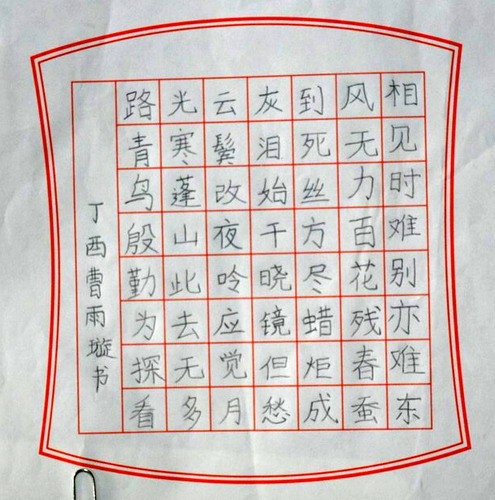 相见时难别亦难东
风无力百花残春蚕
到死丝方尽蜡炬成
灰泪始干晓镜但愁
云鬓改夜吟应觉月
光寒蓬山此去无多
路青鸟殷勤为探看
丁酉曹雨璇书